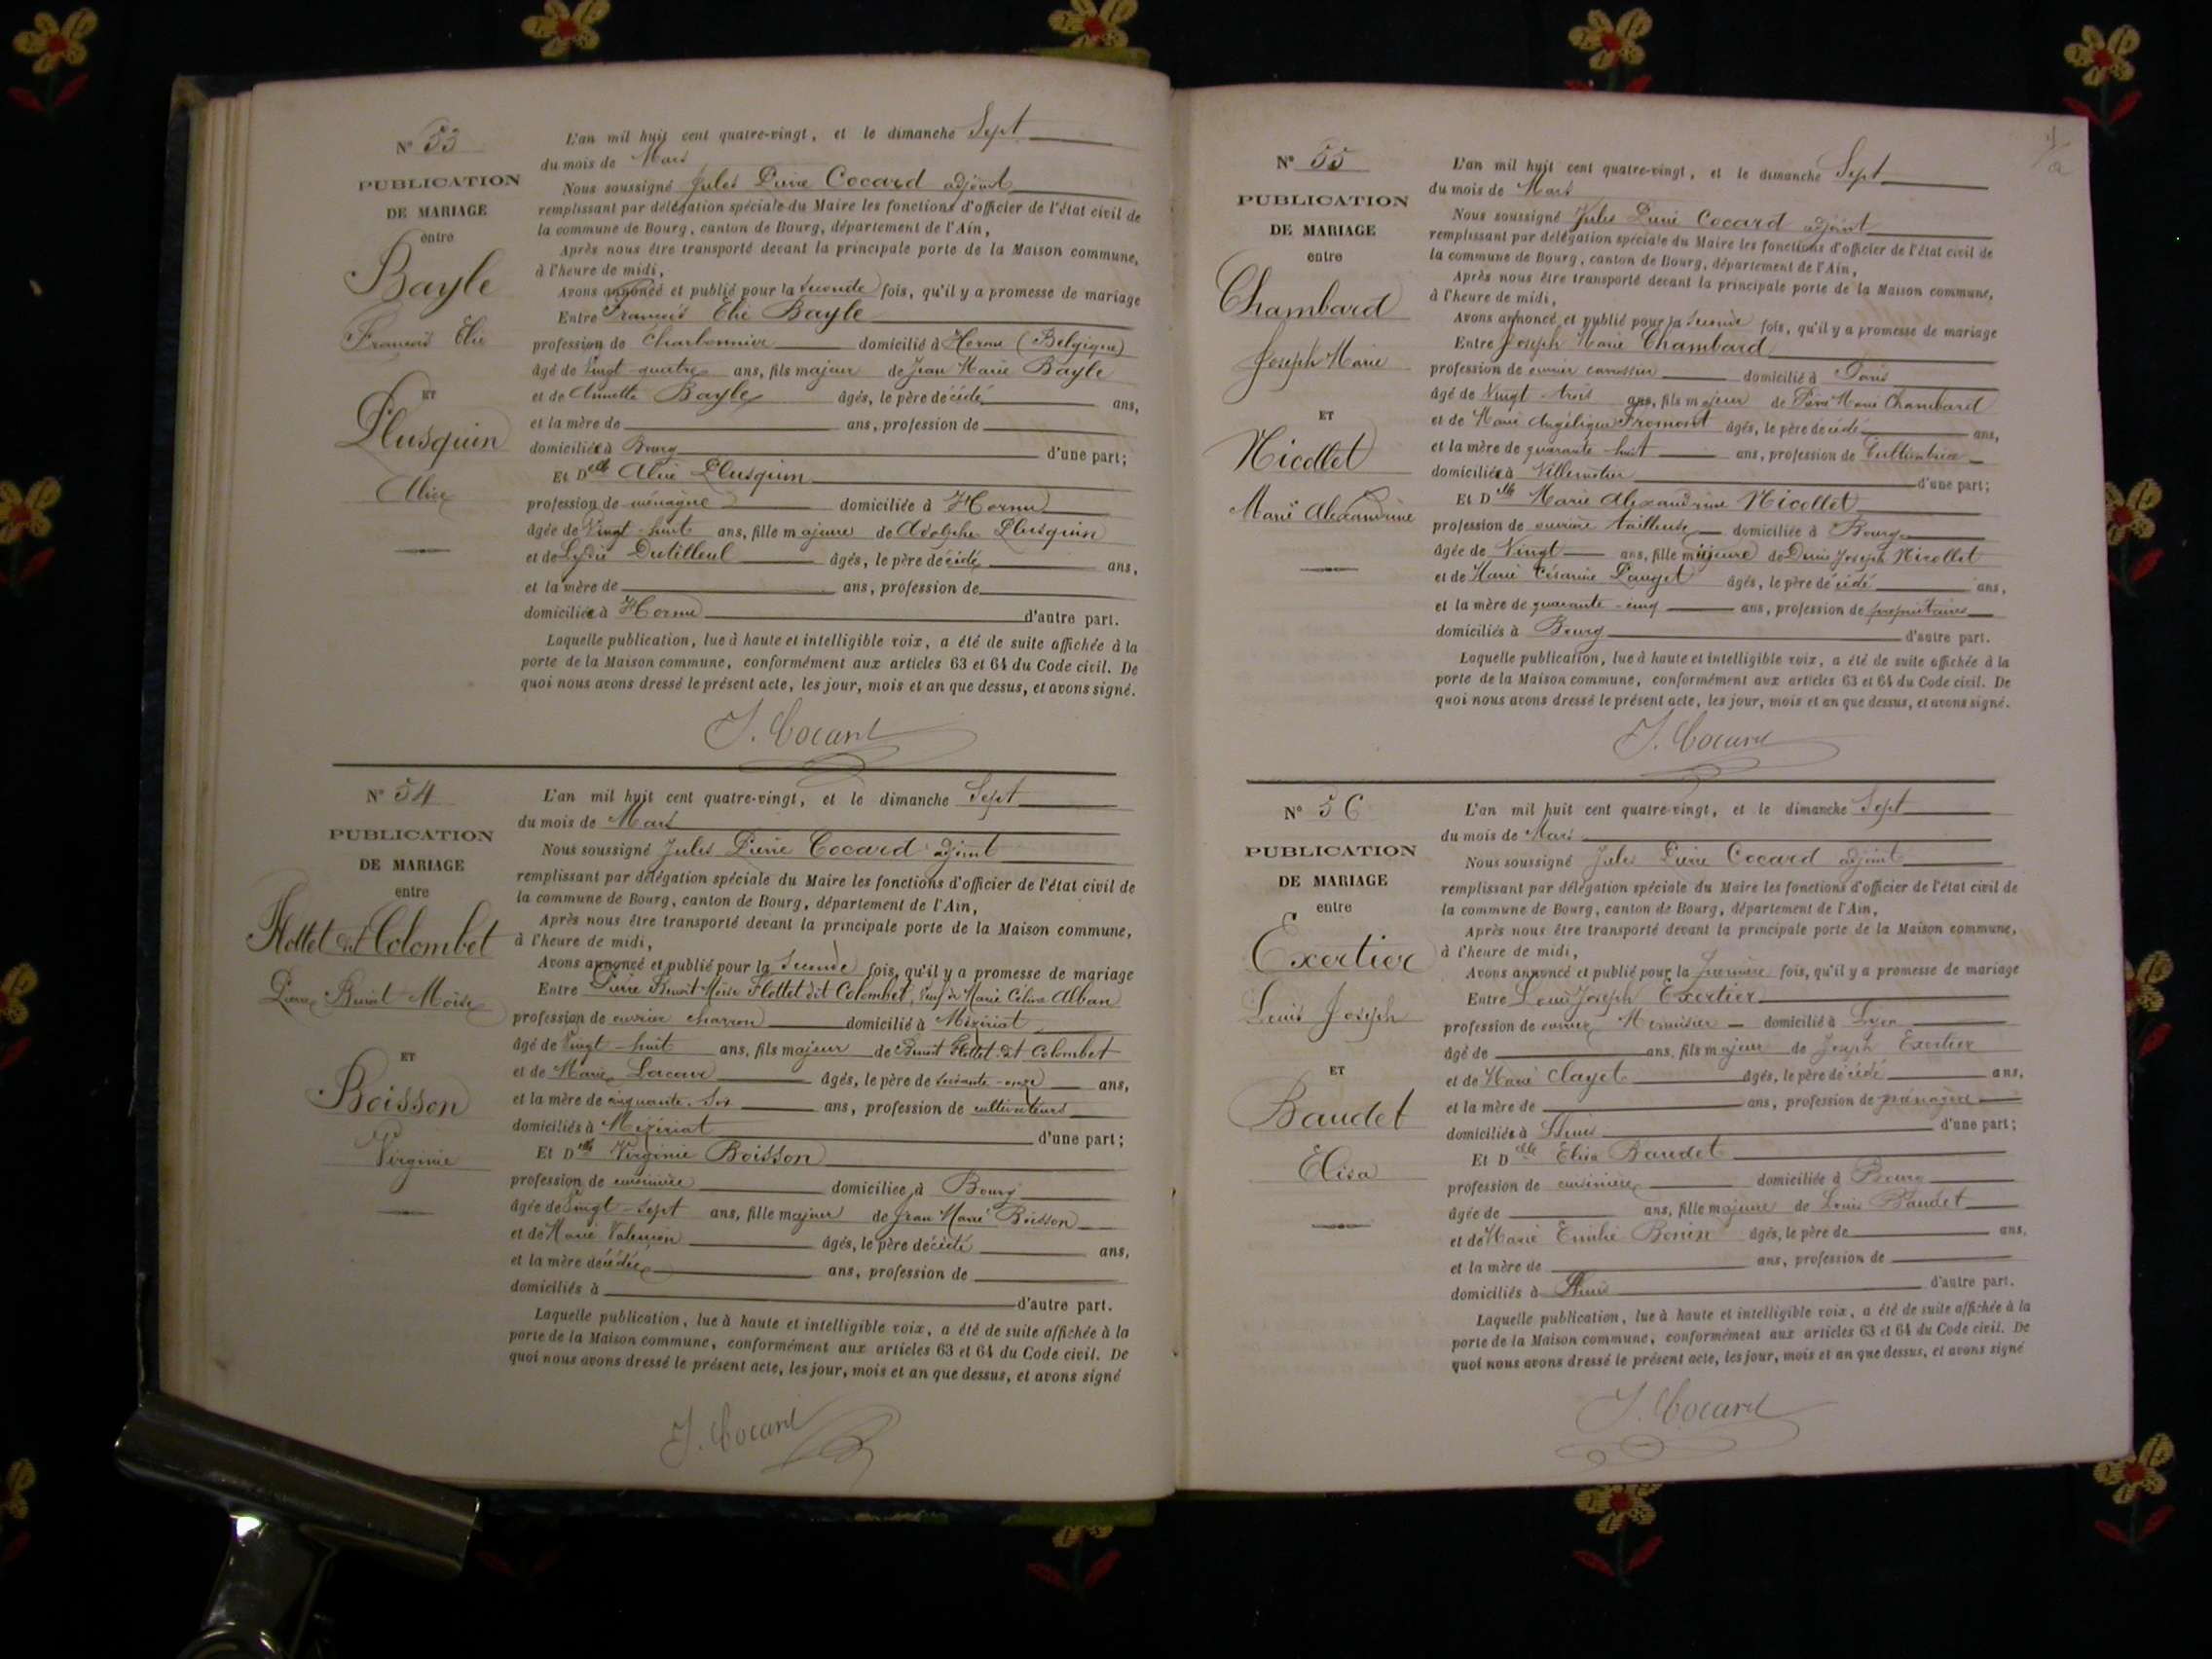 N° 53
PUBLICATION
DE MARIAGE
entre
Bayle
François Elie
ET
Plusquin
Alice
L'an mil huit cent quatre-vingt, et le dimanche Sept
du mois de Mars
Nous soussigné Jules Pierre Cocard adjoint
remplissant par délégation spéciale du Maire les fonctions d'officier de l'état civil de
la commune de Bourg, canton de Bourg, département de l'Ain,
Après nous être transporté devant la principale porte de la Maison commune,
à l'heure de midi,
Avons annoncé et publié pour la seconde fois, qu'il y a promesse de mariage
Entre François Elie Bayle
profession de Charbonnier domicilié à Hornu (Belgique)
âgé de Vingt-quatre ans, fils majeur de Jean Marie Bayle
et de Annette Bayle âgés, le père décédé ans,
et la mère de ans, profession de
domiciliée à Bourg d'une part;
Et Delle Alice Plusquin
profession de ménagère domiciliée à Hornu
âgée de Vingt-huit ans, fille majeure de Adolphe Plusquin
et de Lydie Dutilleul âgés, le père décédé ans,
et la mère de ans, profession de
domiciliée à Hornu d'autre part.
Laquelle publication, lue à haute et intelligible voix, a été de suite affichée à la
porte de la Maison commune, conformément aux articles 63 et 64 du Code civil. De
quoi nous avons dressé le présent acte, les jour, mois et an que dessus, et avons signé.
J. Cocard
N° 54
PUBLICATION
DE MARIAGE
entre
Flottet dit Colombet
Pierre Benoit Moïse
ET
Boisson
Virginie
L'an mil huit cent quatre-vingt, et le dimanche Sept
du mois de Mars
Nous soussigné Jules Pierre Cocard adjoint
remplissant par délégation spéciale du Maire les fonctions d'officier de l'état civil de
la commune de Bourg, canton de Bourg, département de l'Ain,
Après nous être transporté devant la principale porte de la Maison commune,
à l'heure de midi,
Avons annoncé et publié pour la seconde fois, qu'il y a promesse de mariage
Entre Pierre Benoit Moïse Flottet dit Colombet, veuf de Marie Céline Alban
profession de ouvrier charron domicilié à Méziriat
âgé de Vingt-huit ans, fils majeur de Benoit Flottet dit Colombet
et de Marie Lacour âgés, le père de soixante-onze ans,
et la mère de cinquante-six ans, profession de cultivateurs
domiciliés à Méziriat d'une part;
Et Delle Virginie Boisson
profession de cuisinière domiciliée à Bourg
âgée de Vingt-sept ans, fille majeur de Jean Marie Boisson
et de Marie âgés, le père décédé ans,
et la mère décédée ans, profession de
domiciliés à d'autre part.
Laquelle publication, lue à haute et intelligible voix, a été de suite affichée à la
porte de la Maison commune, conformément aux articles 63 et 64 du Code civil. De
quoi nous avons dressé le présent acte, les jour, mois et an que dessus, et avons signé
J. Cocard
N° 55
PUBLICATION
DE MARIAGE
entre
Chambard
Joseph Marie
ET
Nicollet
Marie Alexandrine
L'an mil huit cent quatre-vingt, et le dimanche Sept
du mois de Mars
Nous soussigné Jules Pierre Cocard adjoint
remplissant par délégation spéciale du Maire les fonctions d'officier de l'état civil de
la commune de Bourg, canton de Bourg, département de l'Ain,
Après nous être transporté devant la principale porte de la Maison commune,
à l'heure de midi,
Avons annoncé et publié pour la seconde fois, qu'il y a promesse de mariage
Entre Joseph Marie Chambard
profession de ouvrier carrossier domicilié à Paris
âgé de Vingt-trois ans, fils majeur de Pierre Marie Chambard
et de Marie Angélique Fromont âgés, le père décédé ans,
et la mère de quarante huit ans, profession de Cultivatrice
domiciliée à Villemotier d'une part;
Et Delle Marie Alexandrine Nicollet
profession de ouvrière tailleuse domiciliée à Bourg
âgée de Vingt ans, fille mineure de Denis Joseph Nicollet
et de Marie Césarine Pauget âgés, le père décédé ans,
et la mère de quarante-cinq ans, profession de propriétaire
domiciliés à Bourg d'autre part.
Laquelle publication, lue à haute et intelligible voix, a été de suite affichée à la
porte de la Maison commune, conformément aux articles 63 et 64 du Code civil. De
quoi nous avons dressé le présent acte, les jour, mois et an que dessus, et avons signé.
J. Cocard
N° 56
PUBLICATION
DE MARIAGE
entre
Exertier
Louis Joseph
ET
Baudet
Elisa
L'an mil huit cent quatre-vingt, et le dimanche Sept
du mois de Mars
Nous soussigné Jules Pierre Cocard adjoint
remplissant par délégation spéciale du Maire les fonctions d'officier de l'état civil de
la commune de Bourg, canton de Bourg, département de l'Ain,
Après nous être transporté devant la principale porte de la Maison commune,
à l'heure de midi,
Avons annoncé et publié pour la première fois, qu'il y a promesse de mariage
Entre Louis Joseph Exertier
profession de ouvrier Menuisier domicilié à Lyon
âgé de ans, fils majeur de Joseph Exertier
et de Marie Clayet âgés, le père décédé ans,
et la mère de ans, profession de ménagère
domiciliée à d'une part;
Et Delle Elisa Baudet
profession de cuisinière domiciliée à Bourg
âgée de ans, fille majeure de Louis Baudet
et de Marie Emilie Bonin âgés, le père de ans,
et la mère de ans, profession de
domiciliés à d'autre part.
Laquelle publication, lue à haute et intelligible voix, a été de suite affichée à la
porte de la Maison commune, conformément aux articles 63 et 64 du Code civil. De
quoi nous avons dressé le présent acte, les jour, mois et an que dessus, et avons signé
J. Cocard